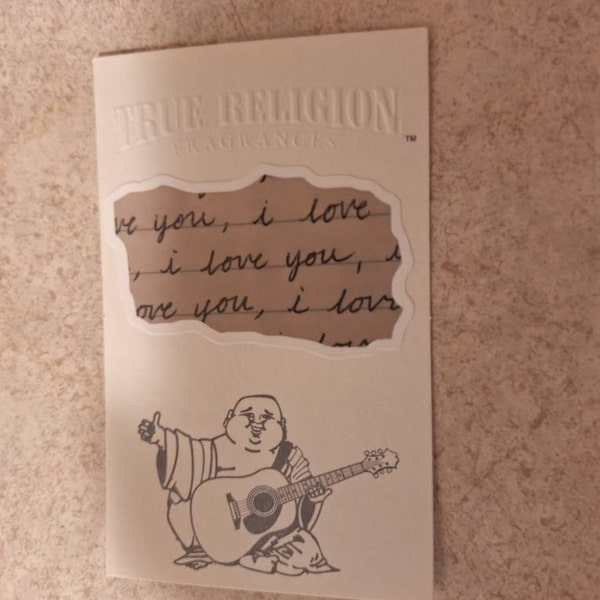 TRUE RELIGION
FRAGRANCES
TM
ve you, i love
, i love you,
ove you, i lov